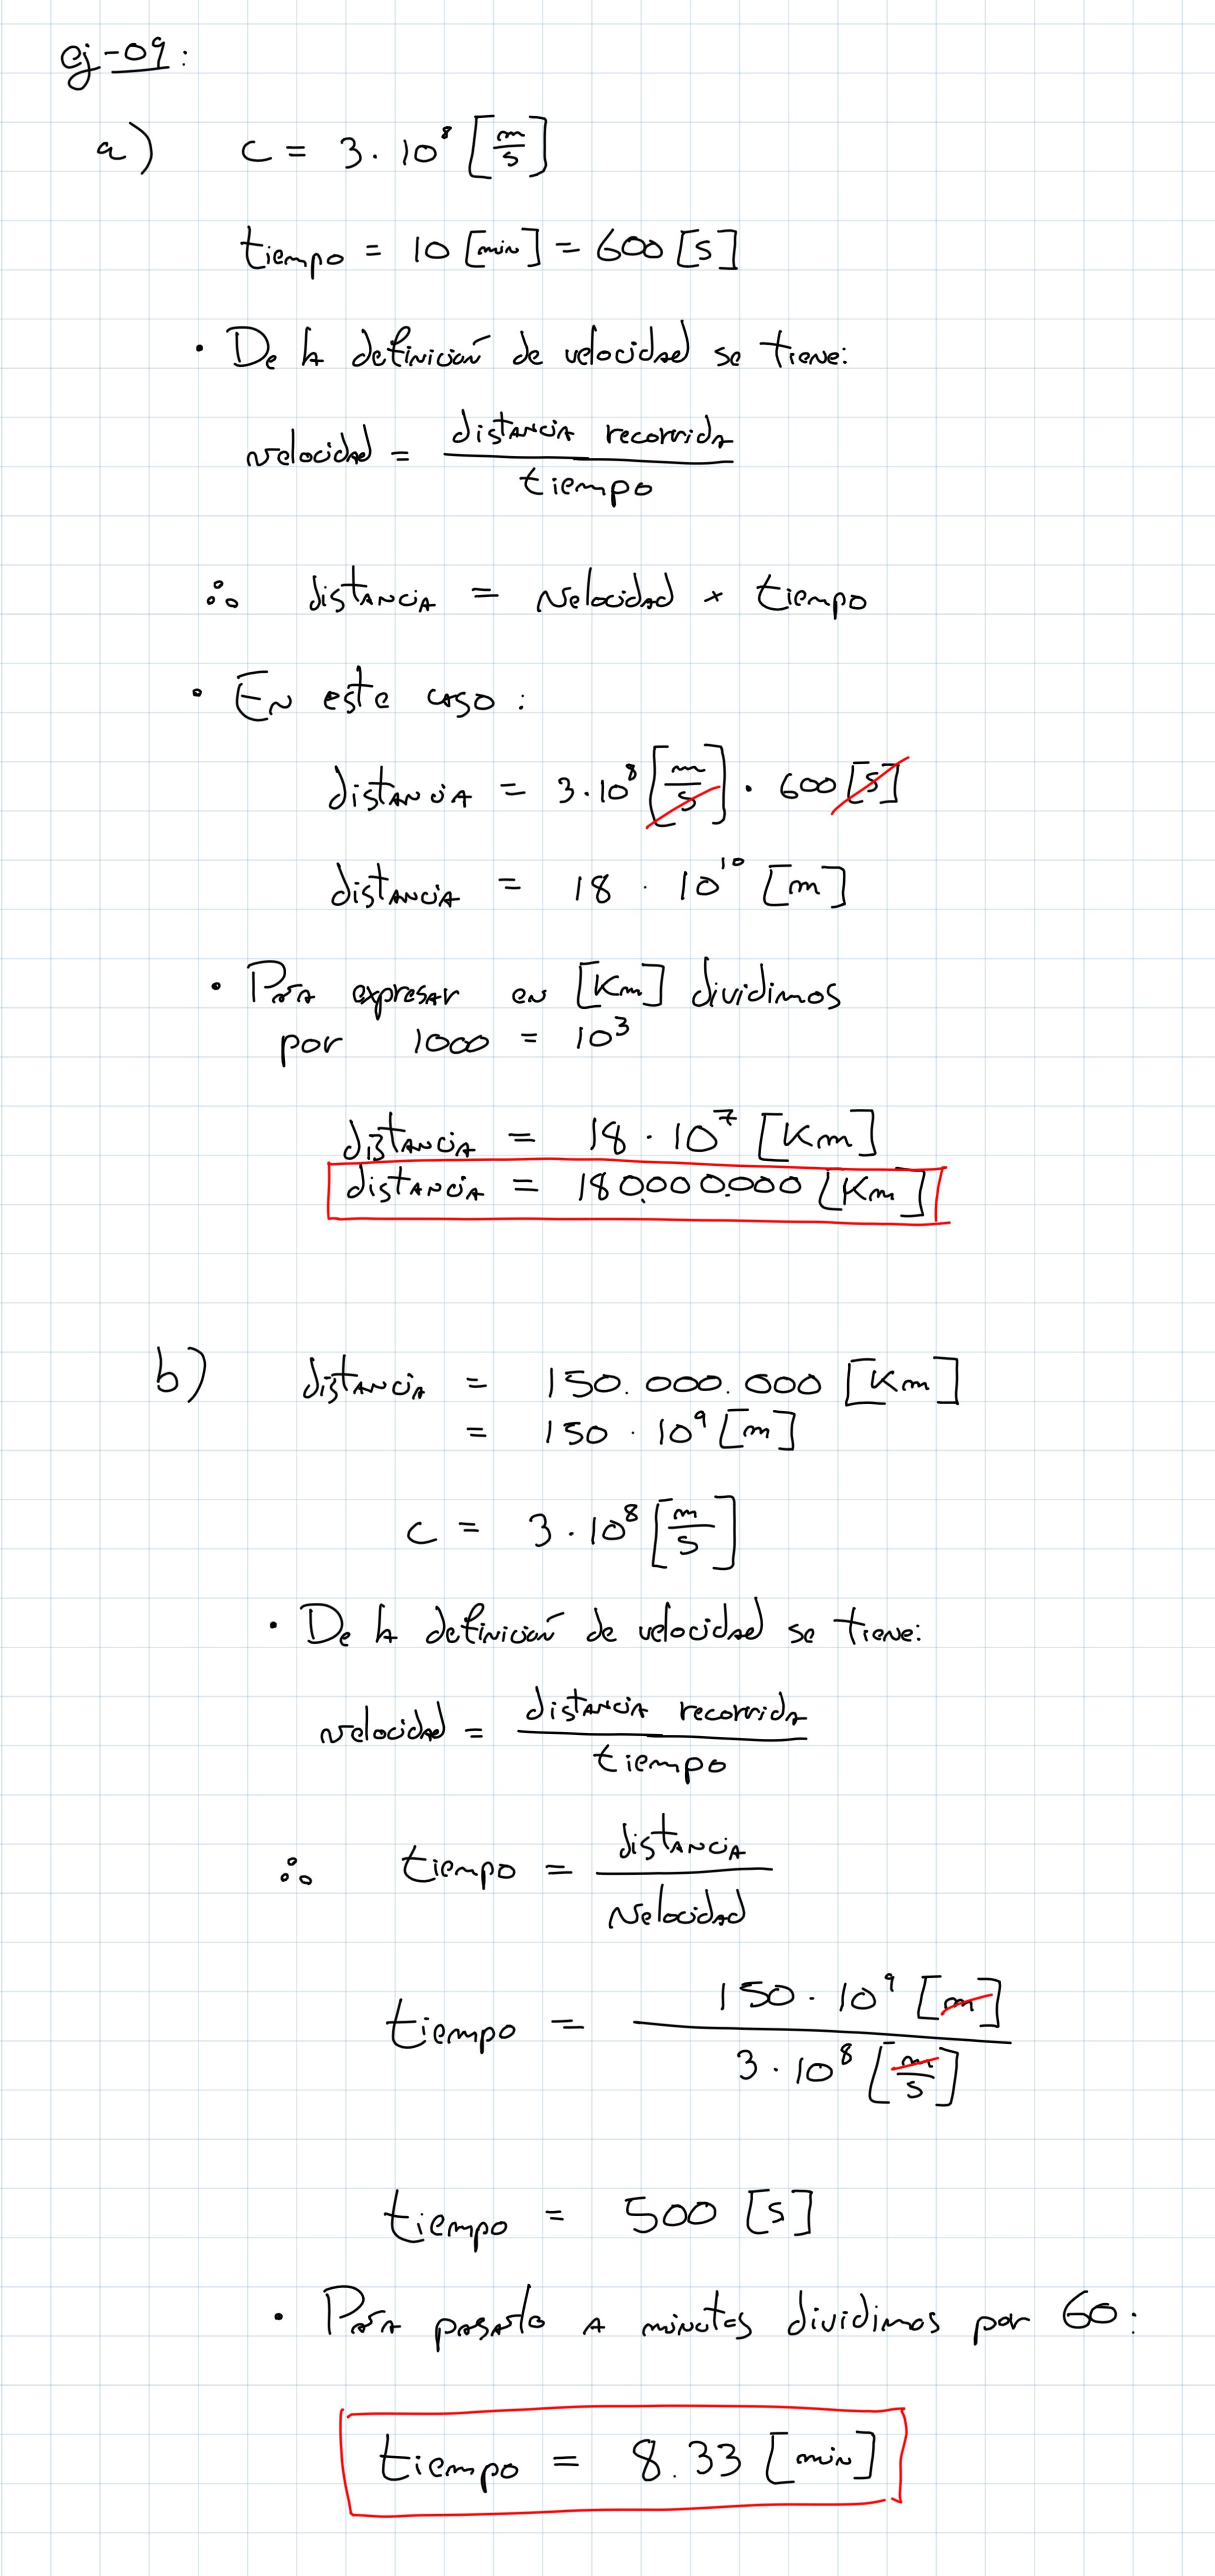 ej-09:
a) c = 3·10⁸ [m/s]
tiempo = 10 [min] = 600 [s]
· De la definición de velocidad se tiene:
velocidad = distancia recorrida / tiempo
∴ distancia = velocidad × tiempo
· En este caso:
distancia = 3·10⁸ [m/s] · 600 [s]
distancia = 18 · 10¹⁰ [m]
· Para expresar en [Km] dividimos
por 1000 = 10³
distancia = 18·10⁷ [Km]
distancia = 180.000.000 [Km]
b) distancia = 150.000.000 [Km]
= 150 · 10⁹ [m]
c = 3·10⁸ [m/s]
· De la definición de velocidad se tiene:
velocidad = distancia recorrida / tiempo
∴ tiempo = distancia / velocidad
tiempo = 150·10⁹ [m] / 3·10⁸ [m/s]
tiempo = 500 [s]
· Para pasarlo a minutos dividimos por 60:
tiempo = 8.33 [min]